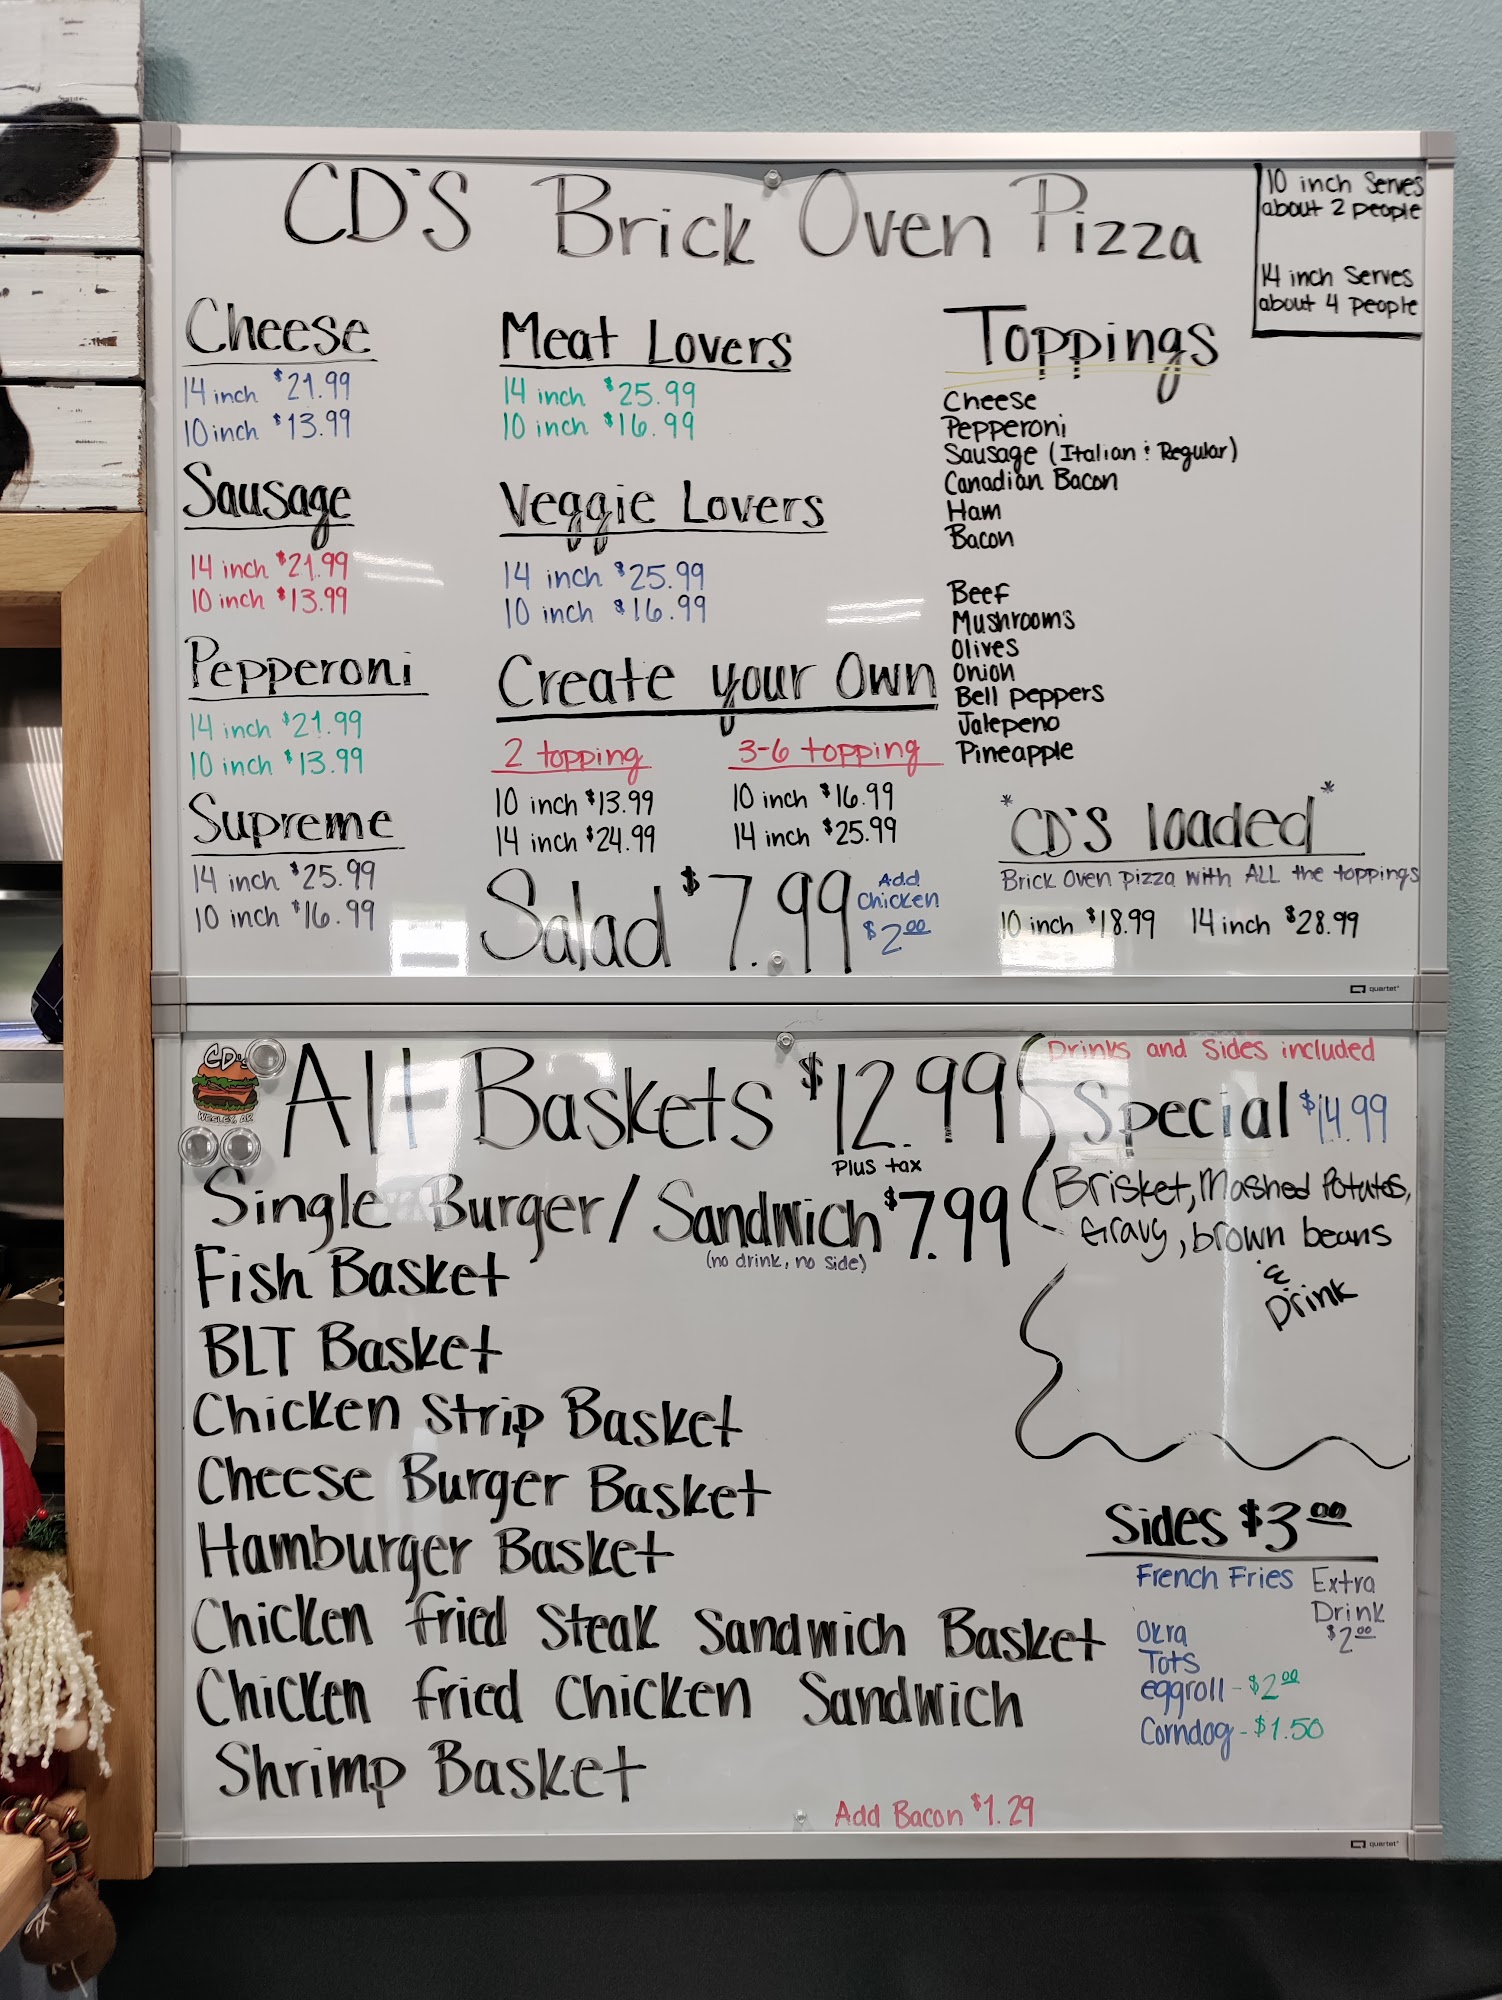 CD'S Brick Oven Pizza
10 inch Serves
about 2 people
14 inch Serves
about 4 people
Cheese
14 inch $21.99
10 inch $13.99
Sausage
14 inch $21.99
10 inch $13.99
Pepperoni
14 inch $21.99
10 inch $13.99
Supreme
14 inch $25.99
10 inch $16.99
Meat Lovers
14 inch $25.99
10 inch $16.99
Veggie Lovers
14 inch $25.99
10 inch $16.99
Create your Own
2 topping
10 inch $13.99
14 inch $24.99
3-6 topping
10 inch $16.99
14 inch $25.99
Salad $7.99
Add
Chicken
$2.00
Toppings
Cheese
Pepperoni
Sausage (Italian & Regular)
Canadian Bacon
Ham
Bacon
Beef
Mushrooms
Olives
Onion
Bell peppers
Jalepeno
Pineapple
*CD'S loaded*
Brick Oven pizza with ALL the toppings
10 inch $18.99 14 inch $28.99
quartet
CD's
WESLEY, AR
All Baskets $12.99
Plus tax
Single Burger/Sandwich $7.99
(no drink, no side)
Fish Basket
BLT Basket
Chicken Strip Basket
Cheese Burger Basket
Hamburger Basket
Chicken fried Steak Sandwich Basket
Chicken fried Chicken Sandwich
Shrimp Basket
Add Bacon $1.29
Drinks and Sides included
Special $14.99
Brisket, Mashed Potatoes,
Gravy, brown beans
&
Drink
Sides $3.00
French Fries
Okra
Tots
eggroll - $2.00
Corndog - $1.50
Extra
Drink
$2.00
quartet